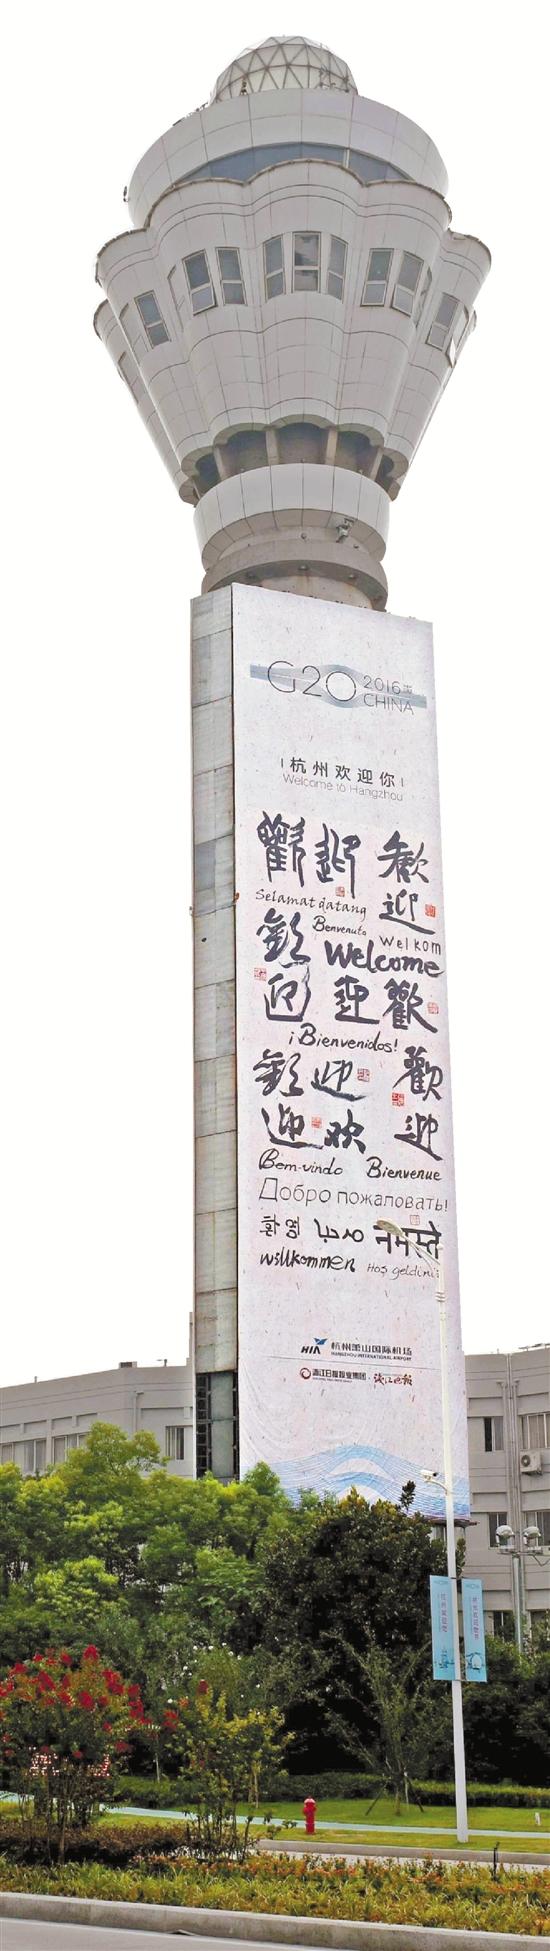 G20 2016 CHINA
杭州欢迎你
Welcome to Hangzhou
歡迎 歡迎
Selamat datang
Benvenuto
Welkom
歡迎
Welcome
迎歡
¡Bienvenidos!
歡迎 歡迎
迎欢
Bem-vindo Bienvenue
Добро пожаловать!
환영 नमस्ते
willkommen Hoş geldiniz
HIA 杭州萧山国际机场
HANGZHOU INTERNATIONAL AIRPORT
浙江日报报业集团·钱江晚报
杭州欢迎您
杭州欢迎您